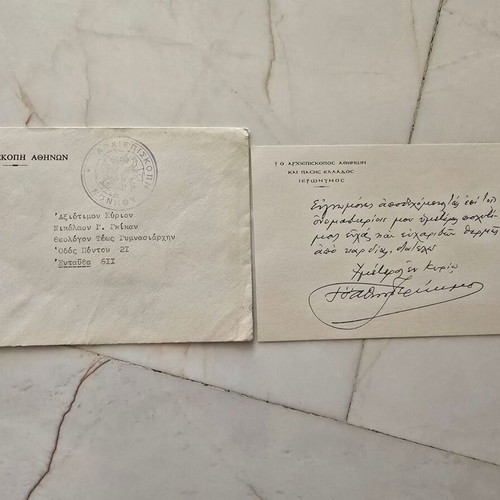 ΣΚΟΠΗ ΑΘΗΝΩΝ
ΑΡΧΙΕΠΙΣΚΟΠΗ
Ἀξιότιμον Κύριον
Νικόλαον Γ. Γκίκαν
Θεολόγον Τέως Γυμνασιάρχην
Ὁδός Πόντου 2Ι
Ἐνταῦθα 6ΙΙ
† Ο ΑΡΧΙΕΠΙΣΚΟΠΟΣ ΑΘΗΝΩΝ
ΚΑΙ ΠΑΣΗΣ ΕΛΛΑΔΟΣ
ΙΕΡΩΝΥΜΟΣ
Εὐγνωμόνως ἀποδεχόμενος τὰς ἐπὶ τοῖς
ὀνομαστηρίοις μου ὑμετέρας
εὐχάς καὶ εὐχαριστῶν θερμῶς
ἀπό καρδίας,
Ὑμέτερος ἐν Κυρίῳ